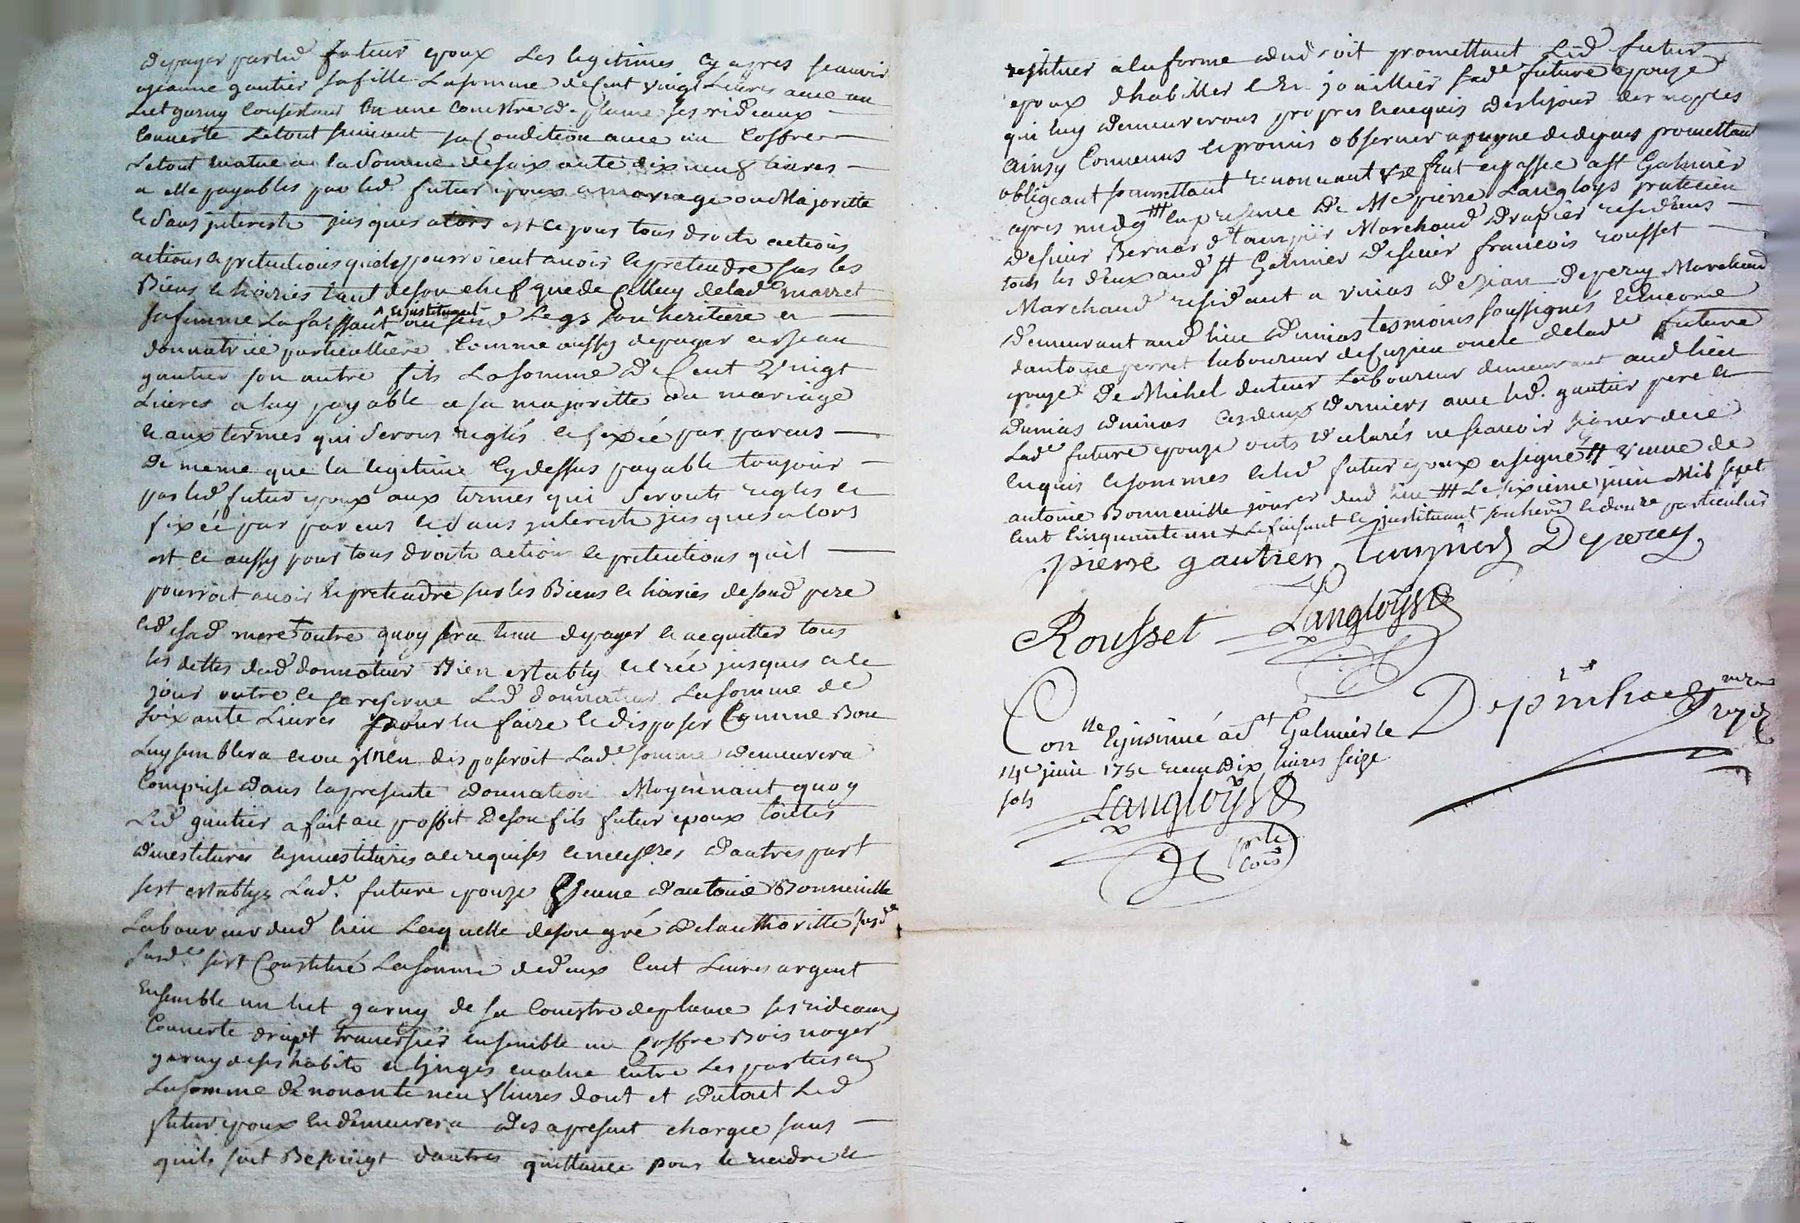 depayer par led futeur epoux Les legitimes cy apres scauoir
a jeanne gautier sa fille La somme de Cent vingt Livres auec un
Liet garny Consistant En une Couestre de plume ses rideaux
Couuerte Le tout suiuant sa Condition auec un Coffre
Le tout evalué a la Somme de soixante dix neuf liures
a elle payables par led futur epoux a mariage ou Majoritté
et sans jnterests jusques alors et ce pour tous droits
actions & pretentions quelle pourroient auoir et pretendre sur les
Biens et hoiries tant de son chef que de Celluy de lad marret
sa femme La faissant et jnstituant son heritiere et
donnatrice particulliere Comme aussy depayer a Jean
gautier son autre fils La somme de Cent Vingt
Liures a luy payable a sa majoritté ou mariage
et aux termes qui Seront reglés et fixée par parens
de meme que la legitime Cy dessus payable toujour
par led futur epoux aux termes qui Serouts reglés et
fixée par parens et sans jnterests jusques alors
et ce aussy pour tous droits action et pretentions quil
pourroit auoir et pretendre sur les Biens et hoiries de sond pere
et de sad mere + outre quoy sera tenu depayer et acquitter tous
les dettes dud donnateur Bien establÿ et crée jusques a ce
jour outre ce se reserve Led donnateur La somme de
soixante Liures pour en faire et disposer Comme Bon
Luy semblera et ou jl nen disposeroit Lade somme demeurera
Comprise dans la presente donnation Moyennant quoy
Led gautier a fait au proffit de son fils futur epoux toutes
deuestitures et jnuestitures a ce requises et necessres d'autre part
sest establye Lade future epouze Estienne d'antoine Bonneuille
Laboureur dud lieu Laquelle de son gré de lauthoritté susde
susde sest Constitué La somme de deux Cent Liures argent
Ensemble un liet garny de sa Couestre de plume ses rideaux
Couuerte drapt trauersier ensemble un Coffre Bois noyer
garny de ses habits et linges evalué entre Les parties a
La somme de nonante neuf liures dont et du tout Led
futur epoux En demeurera des a present chargée sans
quils soit Besoingt dautres quittance pour le rendre et
restituer a la forme du droit promettant Led futur
epoux dhabiller & En jouailler sade future epouze
qui luy demeureront propres et acquis des le jour des nopces
ainsy Conuenus et promis observer a peyne de depens promettant
obligeant soumettant renonceant &c fait et passé a St Galmier
apres midy en presence de Me pierre Langloys praticien
de sieur Bernard Tampier Marchand drapier residens
tous les deux aud St Galmier de sieur francois rousset
Marchand residant a viuias de jean Deperay Marchand
demeurant aud lieu de uiuias tesmoins soussignés et encore
dantoine perret laboureur de Cuzieu oncle de lade future
epouze de Michel duteur Laboureur demeurant aud lieu
de uiuias ces deux derniers auec led gautier pere et
Lade future epouze onts declarés ne scauoir signer de ce
enquis et sommés et led futur epoux a signé
antoine Bonneuille Le sixieme juin Mil sept
cent Cinquante un + La faisant et jnstituant son herd et donre particuliere
pierre gautier Tampier Deperay
Rousset Langloys
Conlle & jnsinué a St Galmier le
14e juin 175 receu dix liures seize
sols
Langloys